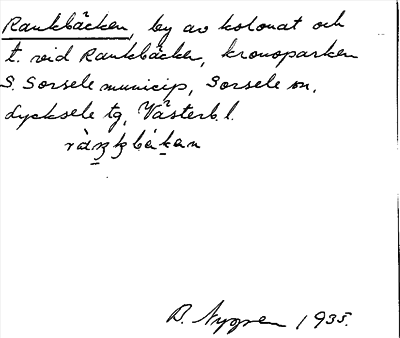 Rankbäcken, by av kolonat och
t. vid Rankbäcken, kronoparken
S. Sorsele municip, Sorsele sn,
Lycksele tg, Västerb. l.
B. Nygren 1935.